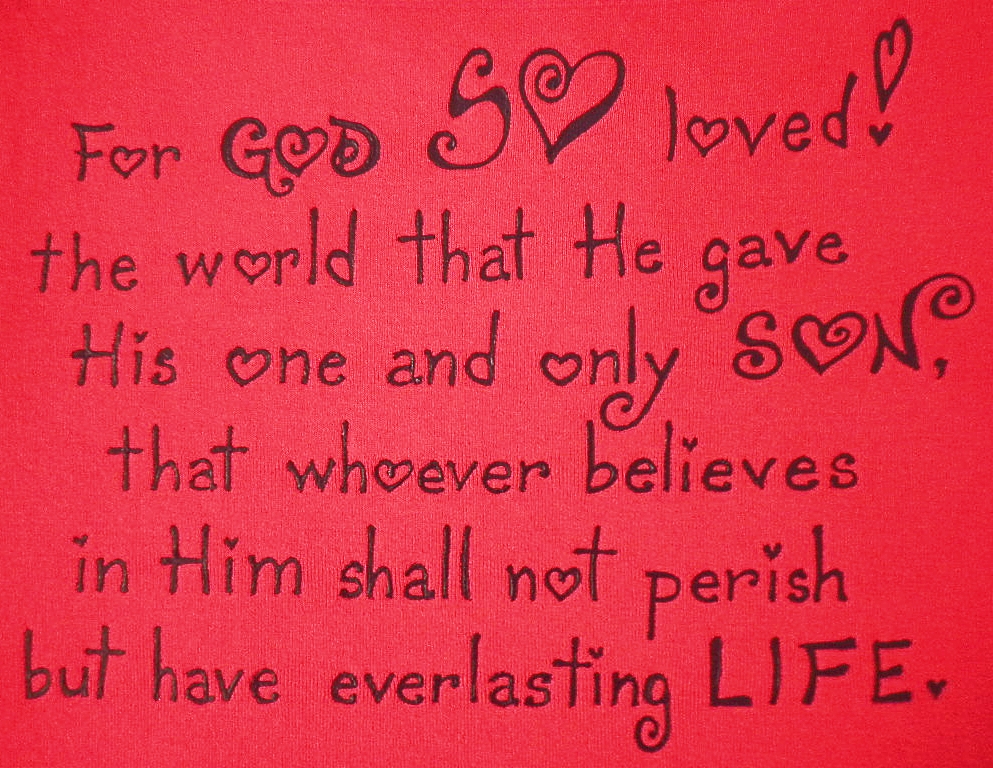 For GOD SO loved!
the world that He gave
His one and only SON,
that whoever believes
in Him shall not perish
but have everlasting LIFE.